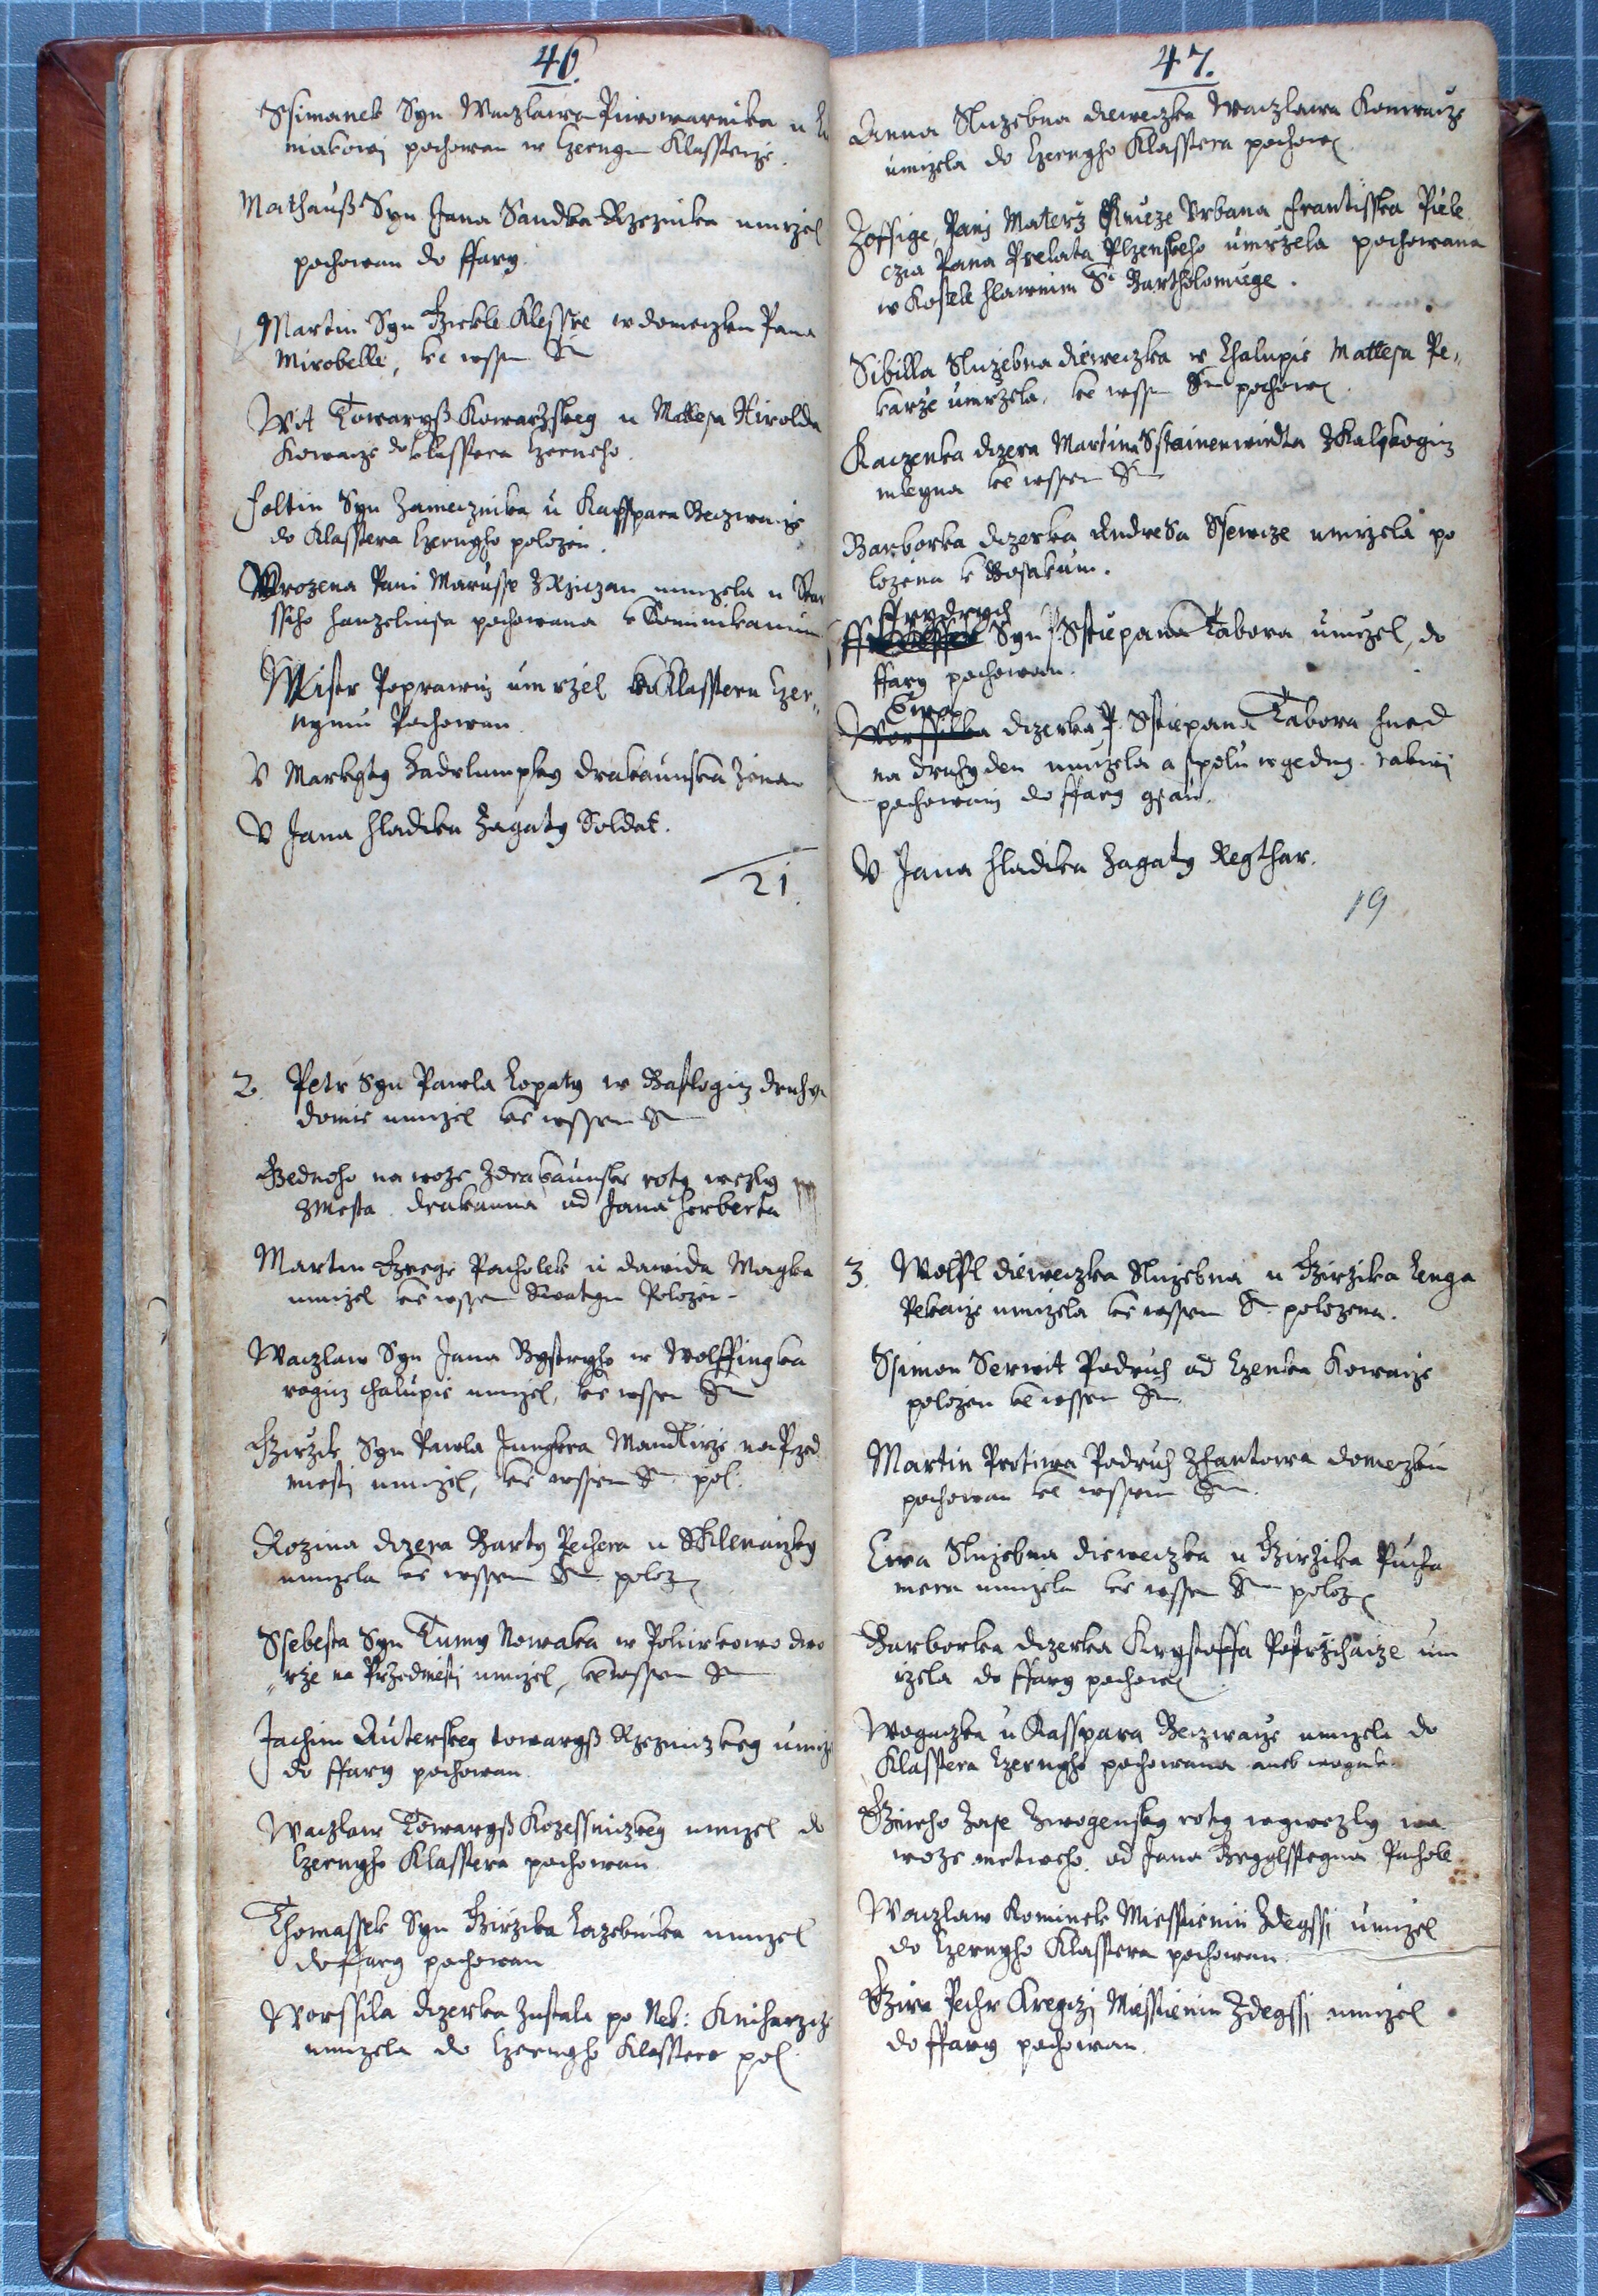 46.
Ssimanek Syn Waczlawa Piwowarnika u
niakowi pochowan w Czernym Klassterze.
Mathauß Syn Jana Sandka Rzeznika umrzel
pochowan do ffary.
Martin Syn Jirkle Klesste w domeczku Pana
Mirobelle, ke wssem S
Wit Towaryß Kowarzskey u Mattesa Hirolda
Kowarze do klasstera Czerneho.
Foltin Syn Zamecznika u Kasspara Beczwarze
do Klasstera Czernyho polozen.
Urozena Pani Marusse z Rziczan umrzela u Star
ssiho Hanzelinsa pochowana k Dominikanum
Mistr Poprawni umrzel k Klassteru Czer„
nymu Pochowan.
V Markyty Kadrlumpky drakaunska Zena
V Jana Hladika Zagaty Soldat.
21.
2. Petr Syn Pawla Lopaty w Baslogicz druhym
domie umrzel ke wssem S
Gednoho na woze z drakaunske roty wezly
z Mesta drakauna od Jana Herberta
Martin Pacholek u Dawida Magka
umrzel ke wssem Swatym Polozen.
Waczlaw Syn Jana Bystryho w Wolffingka
rogicz chalupie umrzel, ke wssem S
Girzik Syn Pawla Jungkera Mandlirze na Przed
mesti umrzel, ke wssem S pol.
Rozina dczera Barty Pechera u Sklenarzky
umrzela ke wssem S poloz
Ssebesta Syn Tumy Nowaka w Polinkowo dwo
„rze na Przedmiesti umrzel, ke wssem S
Jachim Auterskey towaryß Rzeznizkey umrz
do ffary pochowan.
Waczlaw Towaryß Kozessniczkey umrzel do
Czernyho Klasstera pochowan.
Thomassek Syn Girzika Lazebnika umrzel
do ffary pochowan
Worssila dczerka Zustala po Neb: Kniharzcze
umrzela do Czernyho Klasstera pol.
47.
Anna Sluzebna dieweczka Waczlawa Konwarze
umrzela do Czernyho Klasstera pochow
Zoffige, Pani Materz Knieze Urbana Frantisska Piele
czia Pana Prelata Plzenskeho umrzela pochowana
w Kostele hlawnim S: Bartholomiege.
Sibilla Sluzebna dieweczka w Chalupie Mattesa Pe„
karze umrzela, ke wssem S pochow
Kaczenka dczera Martina Sstainenwirdta z Kalikogicz
mlegna ke wssem S
Barborka dczerka Andresa Ssewcze umrzela po
lozena k Bosakum.
ffrydrych
Syn P Sstiepana Tabora umrzel, do
ffary pochowan.
Ewa
Worssilka dczerka P. Sstiepana Tabora hned
na druhy den umrzela a spolu w gedny rakwi
pochowani do ffary gsau.
V Jana Hladika Zagaty Regthar.
19
3. Wolffl dieweczka Sluzebna u Girzika Lenga
Pekarze umrzela ke wssem S polozena.
Ssimon Serwit Podruh od Czenka Kowarze
polozen ke wssem S
Martin Protiwa Podruh z Hantowa domeczku
pochowan ke wssem S
Ewa Sluzebna dieweczka u Girzika Pucha
mera umrzela ke wssem S poloz
Barborka dczerka Krystoffa Postrzihacze um
rzela do ffary pochow
Wogaczka u Kasspara Beczwarze umrzela do
Klasstera Czernyho pochowana aneb wogak.
Gineho Zase Zwogensky roty wywezly na
woze mrtweho od Jana Bryglsstegna Pachole
Waczlaw Kominek Miesstienin Zdegssi umrzel
do Czernyho Klasstera pochowan.
Gira Pechr Kregczi Miesstienin Zdegssi umrzel
do ffary pochowan.